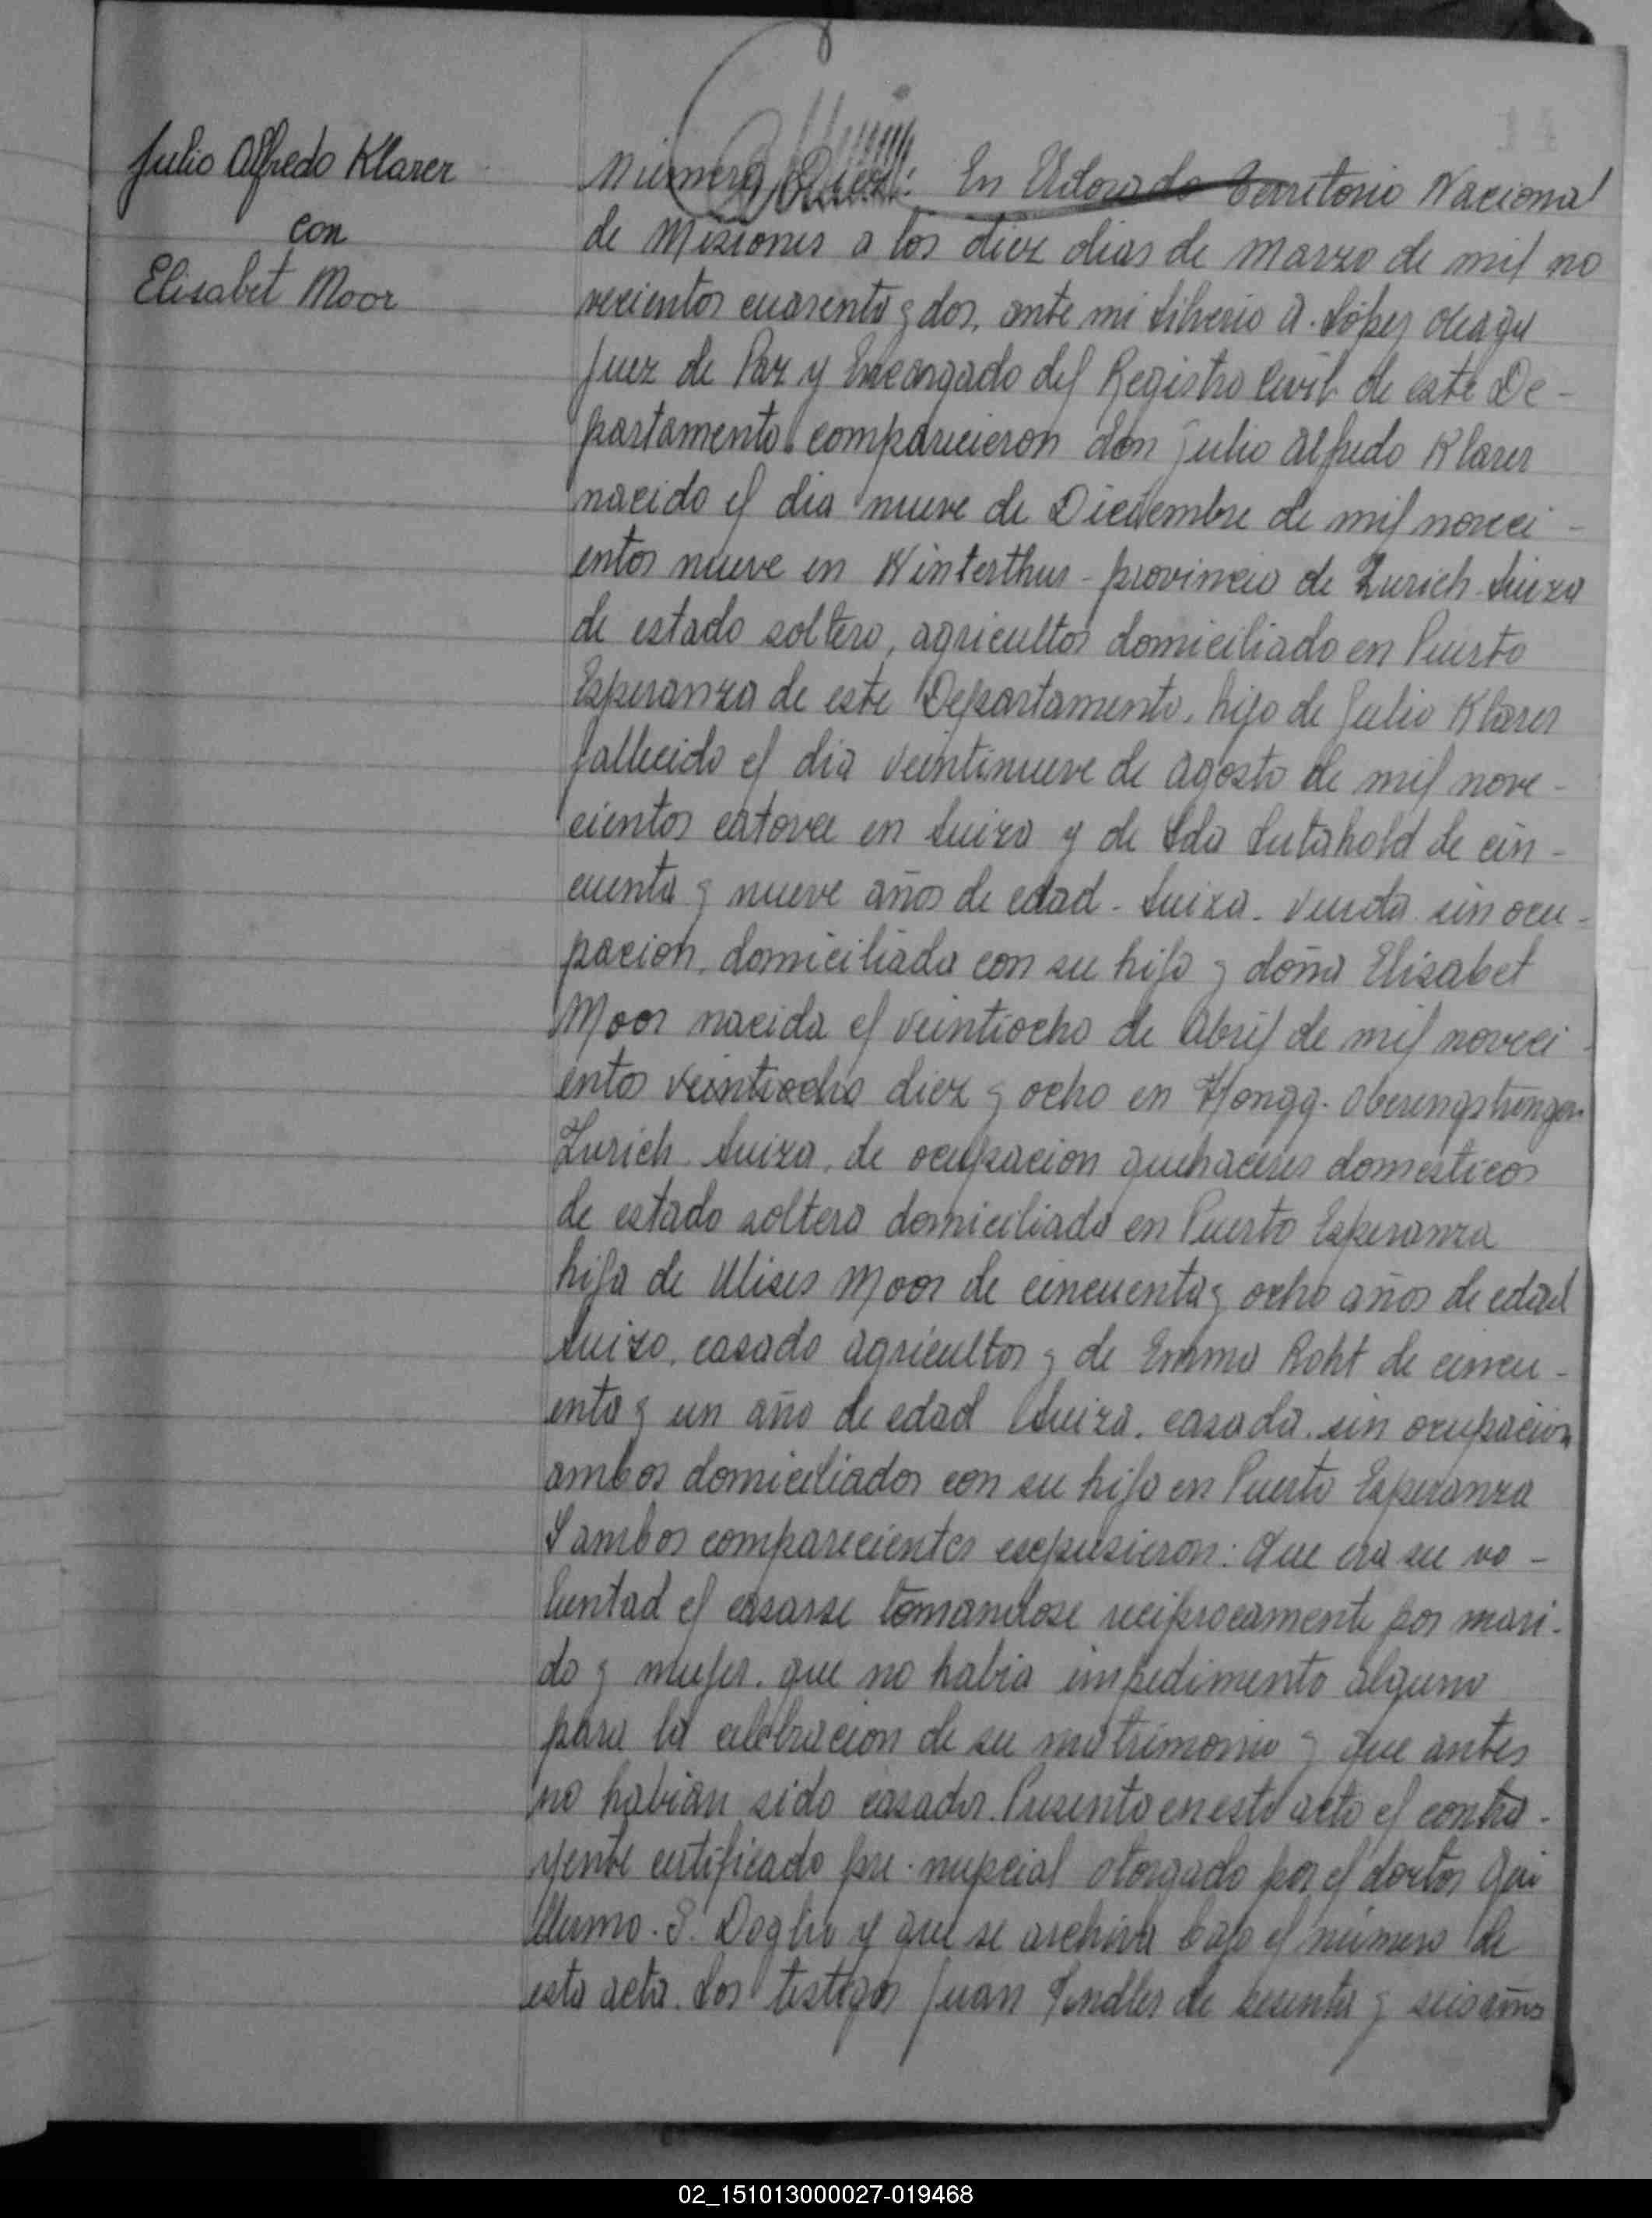 Julio Alfredo Klarer
con
Elisabet Moor
Número Diez: En Eldorado Territorio Nacional
de Misiones a los diez dias de Marzo de mil no
vecientos cuarenta y dos, ante mi Silverio A. López
Juez de Paz y Encargado del Registro Civil de este De-
partamento comparecieron don Julio Alfredo Klarer
nacido el dia nueve de Diciembre de mil noveci-
entos nueve en Winterthur - provincia de Zurich. Suiza
de estado soltero, agricultor domiciliado en Puerto
Esperanza de este Departamento, hijo de Julio Klarer
fallecido el dia veintinueve de Agosto de mil nove-
cientos catorce en Suiza y de Ida de cin-
cuenta y nueve años de edad - Suiza. viuda sin ocu-
pacion, domiciliada con su hijo y doña Elisabet
Moor nacida el veintiocho de Abril de mil noveci-
entos veintiocho diez y ocho en Hongg. Oberengstringen
Zurich. Suiza, de ocupacion quehaceres domesticos
de estado soltera domiciliada en Puerto Esperanza
hija de Ulises Moor de cincuenta y ocho años de edad
Suizo, casado agricultor y de Emma Roht de cincu-
enta y un año de edad Suiza, casada, sin ocupación
ambos domiciliados con su hija en Puerto Esperanza
Y ambos comparecientes expusieron: Que era su vo-
luntad el casarse tomandose reciprocamente por mari-
do y mujer, que no habia impedimento alguno
para la celebracion de su matrimonio y que antes
no habian sido casados. Presento en este acto el contra-
yente certificado pre-nupcial otorgado por el doctor Gui
llermo. S. y que se archiva bajo el número de
esta acta. Los testigos Juan de sesenta y seis años
02_151013000027-019468